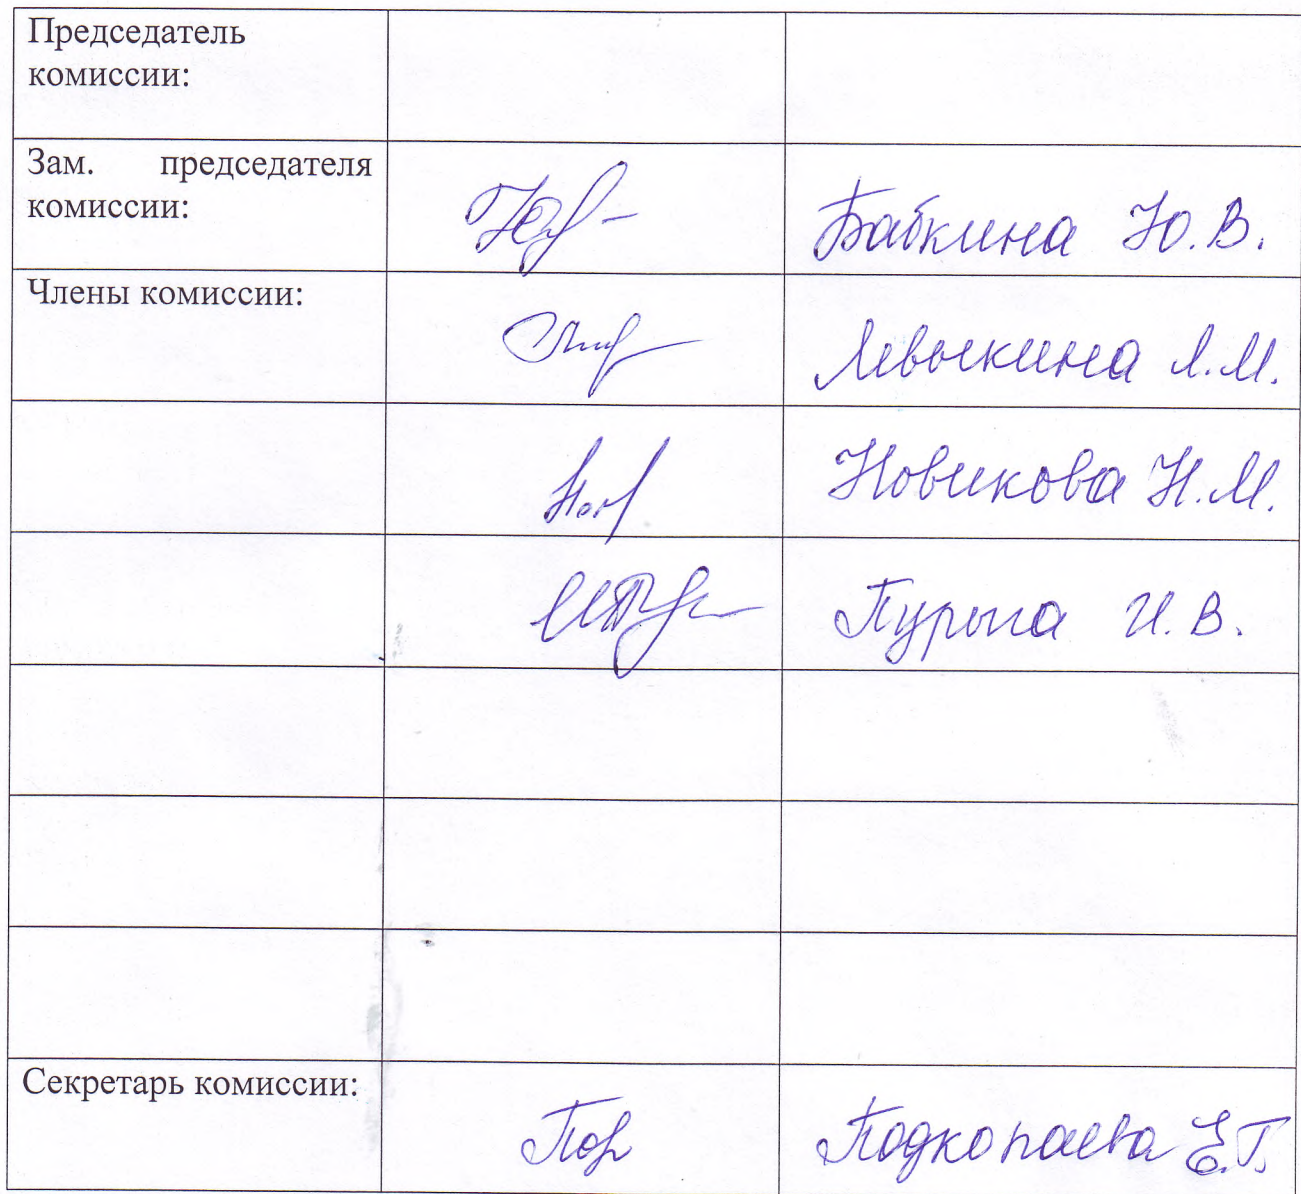 Председатель
комиссии:
Зам. председателя
комиссии:
Бабкина Ю.В.
Члены комиссии:
Левыкина Л.М.
Новикова Н.М.
Пурыга И.В.
Секретарь комиссии:
Подкопаева Е.Г.